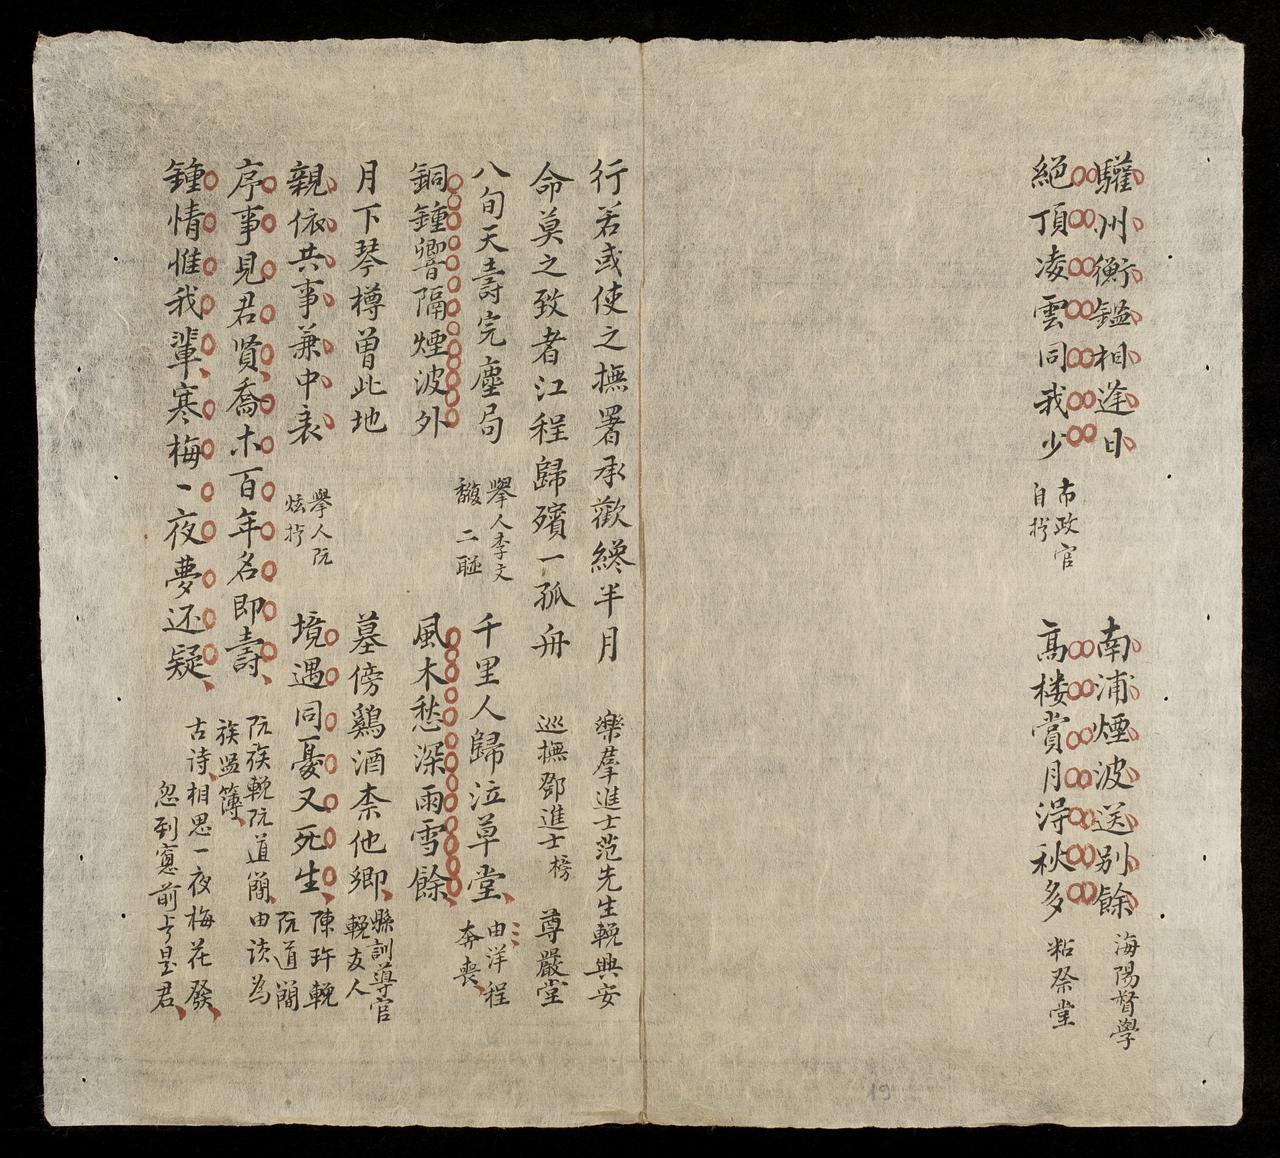 驩州衡鑑相逢日 南浦煙波送別餘 海陽督學
絕頂凌雲同我少 布政官自拧 高楼賞月浔秋多 粘祭堂
行若或使之撫署承歡纔半月 樂羣進士范先生輓興安
命莫之致者江程歸殯一孤舟 巡撫鄧進士榜 尊嚴堂
八旬天壽完塵局 舉人李文馥 二聯 千里人歸泣草堂 由洋程奔喪
銅鍾響隔煙波外 風木愁深雨雪餘
月下琴樽曽此地 墓傍鷄酒柰他卿 縣訓導官輓友人
親依共事兼中表 舉人阮炫拧 境遇同憂又死生 陳玝輓阮道簡
序事見君賢喬木百年名即壽 阮族輓阮道簡由读为族监簿
鍾情惟我輩寒梅一夜夢还疑 古诗相思一夜梅花發
忽到窻前㱏是君